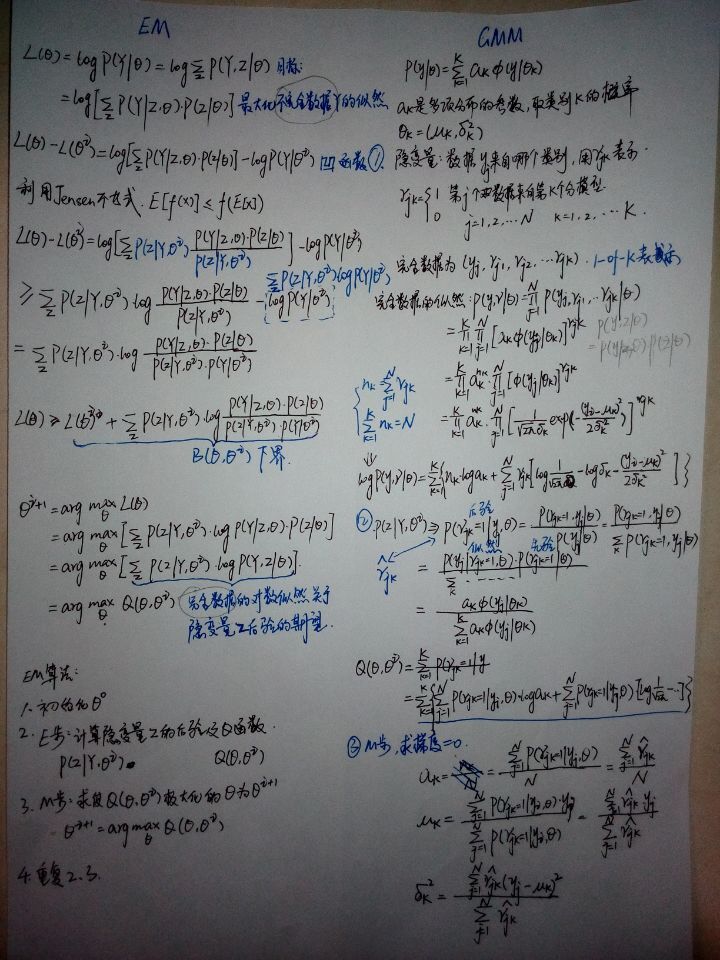 EM
L(θ) = log P(Y|θ) = log Σ_Z P(Y,Z|θ) 目标:
= log[Σ_Z P(Y|Z,θ)·P(Z|θ)] 最大化不完全数据Y的似然
L(θ) - L(θⁱ) = log[Σ_Z P(Y|Z,θ)·P(Z|θ)] - log P(Y|θⁱ) 凹函数①
利用Jensen不等式. E[f(x)] ≤ f(E[x])
L(θ) - L(θⁱ) = log[Σ_Z P(Z|Y,θⁱ) P(Y|Z,θ)·P(Z|θ) / P(Z|Y,θⁱ)] - log P(Y|θⁱ)
Σ_Z P(Z|Y,θⁱ) log P(Y|θⁱ)
≥ Σ_Z P(Z|Y,θⁱ)·log P(Y|Z,θ)·P(Z|θ) / P(Z|Y,θⁱ) - log P(Y|θⁱ)
= Σ_Z P(Z|Y,θⁱ)·log P(Y|Z,θ)·P(Z|θ) / P(Z|Y,θⁱ)·P(Y|θⁱ)
L(θ) ≥ L(θⁱ) + Σ_Z P(Z|Y,θⁱ)·log P(Y|Z,θ)·P(Z|θ) / P(Z|Y,θⁱ)·P(Y|θⁱ)
B(θ,θⁱ) 下界.
θⁱ⁺¹ = arg max_θ L(θ)
= arg max_θ [Σ_Z P(Z|Y,θⁱ)·log P(Y|Z,θ)·P(Z|θ)]
= arg max_θ [Σ_Z P(Z|Y,θⁱ)·log P(Y,Z|θ)].
= arg max_θ Q(θ,θⁱ) 完全数据的对数似然关于
隐变量Z后验的期望.
EM算法:
1. 初始化θ⁰
2. E步: 计算隐变量Z的后验及Q函数.
P(Z|Y,θⁱ) Q(θ,θⁱ)
3. M步: 求使Q(θ,θⁱ)极大化的θ为θⁱ⁺¹
θⁱ⁺¹ = arg max_θ Q(θ,θⁱ)
4. 重复2.3.
GMM
P(y|θ) = Σ_{k=1}^K a_k φ(y|θ_k)
a_k是多项分布的参数, 取类别K的概率
θ_k = (μ_k, δ_k²)
隐变量: 数据y_j来自哪个类别, 用γ_jk表示.
γ_jk = { 1 第j个数据来自第K个分模型.
0
j=1,2,…N k=1,2,…K.
完全数据为 (y_j, γ_j1, γ_j2, …γ_jk). 1-of-K表示
完全数据的似然: P(y,γ|θ) = Π_{j=1}^N P(y_j, γ_j1, …γ_jk|θ)
= Π_{k=1}^K Π_{j=1}^N [a_k φ(y_j|θ_k)]^γ_jk
P(y,z|θ)
= P(y|z,θ)·P(z|θ)
= Π_{k=1}^K a_k^n_k · Π_{j=1}^N [φ(y_j|θ_k)]^γ_jk
{ n_k = Σ_{j=1}^N γ_jk
Σ_{k=1}^K n_k = N
= Π_{k=1}^K a_k^n_k · Π_{j=1}^N [1/(√2π δ_k) exp(-(y_j-μ_k)²/2δ_k²)]^γ_jk
⇓
log P(y,γ|θ) = Σ_{k=1}^K { n_k log a_k + Σ_{j=1}^N γ_jk [log 1/√2π - log δ_k - (y_j-μ_k)²/2δ_k²] }
② P(Z|Y,θⁱ) ⇒ 后验 P(γ_jk=1|y_j,θ) = P(γ_jk=1,y_j|θ) / P(y_j|θ) = P(γ_jk=1,y_j|θ) / Σ_k P(γ_jk=1,y_j|θ)
γ̂_jk
似然 先验
= P(y_j|γ_jk=1,θ)·P(γ_jk=1|θ) / Σ_k ------
= a_k φ(y_j|θ_k) / Σ_{k=1}^K a_k φ(y_j|θ_k)
Q(θ,θⁱ) = Σ_{k=1}^K P(γ_jk=1|y
= Σ_{k=1}^K { Σ_{j=1}^N P(γ_jk=1|y_j,θ)·log a_k + Σ_{j=1}^N P(γ_jk=1|y_jθ)[log 1/√2π -…] }
③ M步, 求梯度=0.
a_k = Σ_{j=1}^N P(γ_jk=1|y_j,θ) / N = Σ_{j=1}^N γ̂_jk / N
μ_k = Σ_{j=1}^N P(γ_jk=1|y_j,θ)·y_j / Σ_{j=1}^N P(γ_jk=1|y_j,θ) = Σ_{j=1}^N γ̂_jk y_j / Σ_{j=1}^N γ̂_jk
δ_k² = Σ_{j=1}^N γ̂_jk(y_j-μ_k)² / Σ_{j=1}^N γ̂_jk